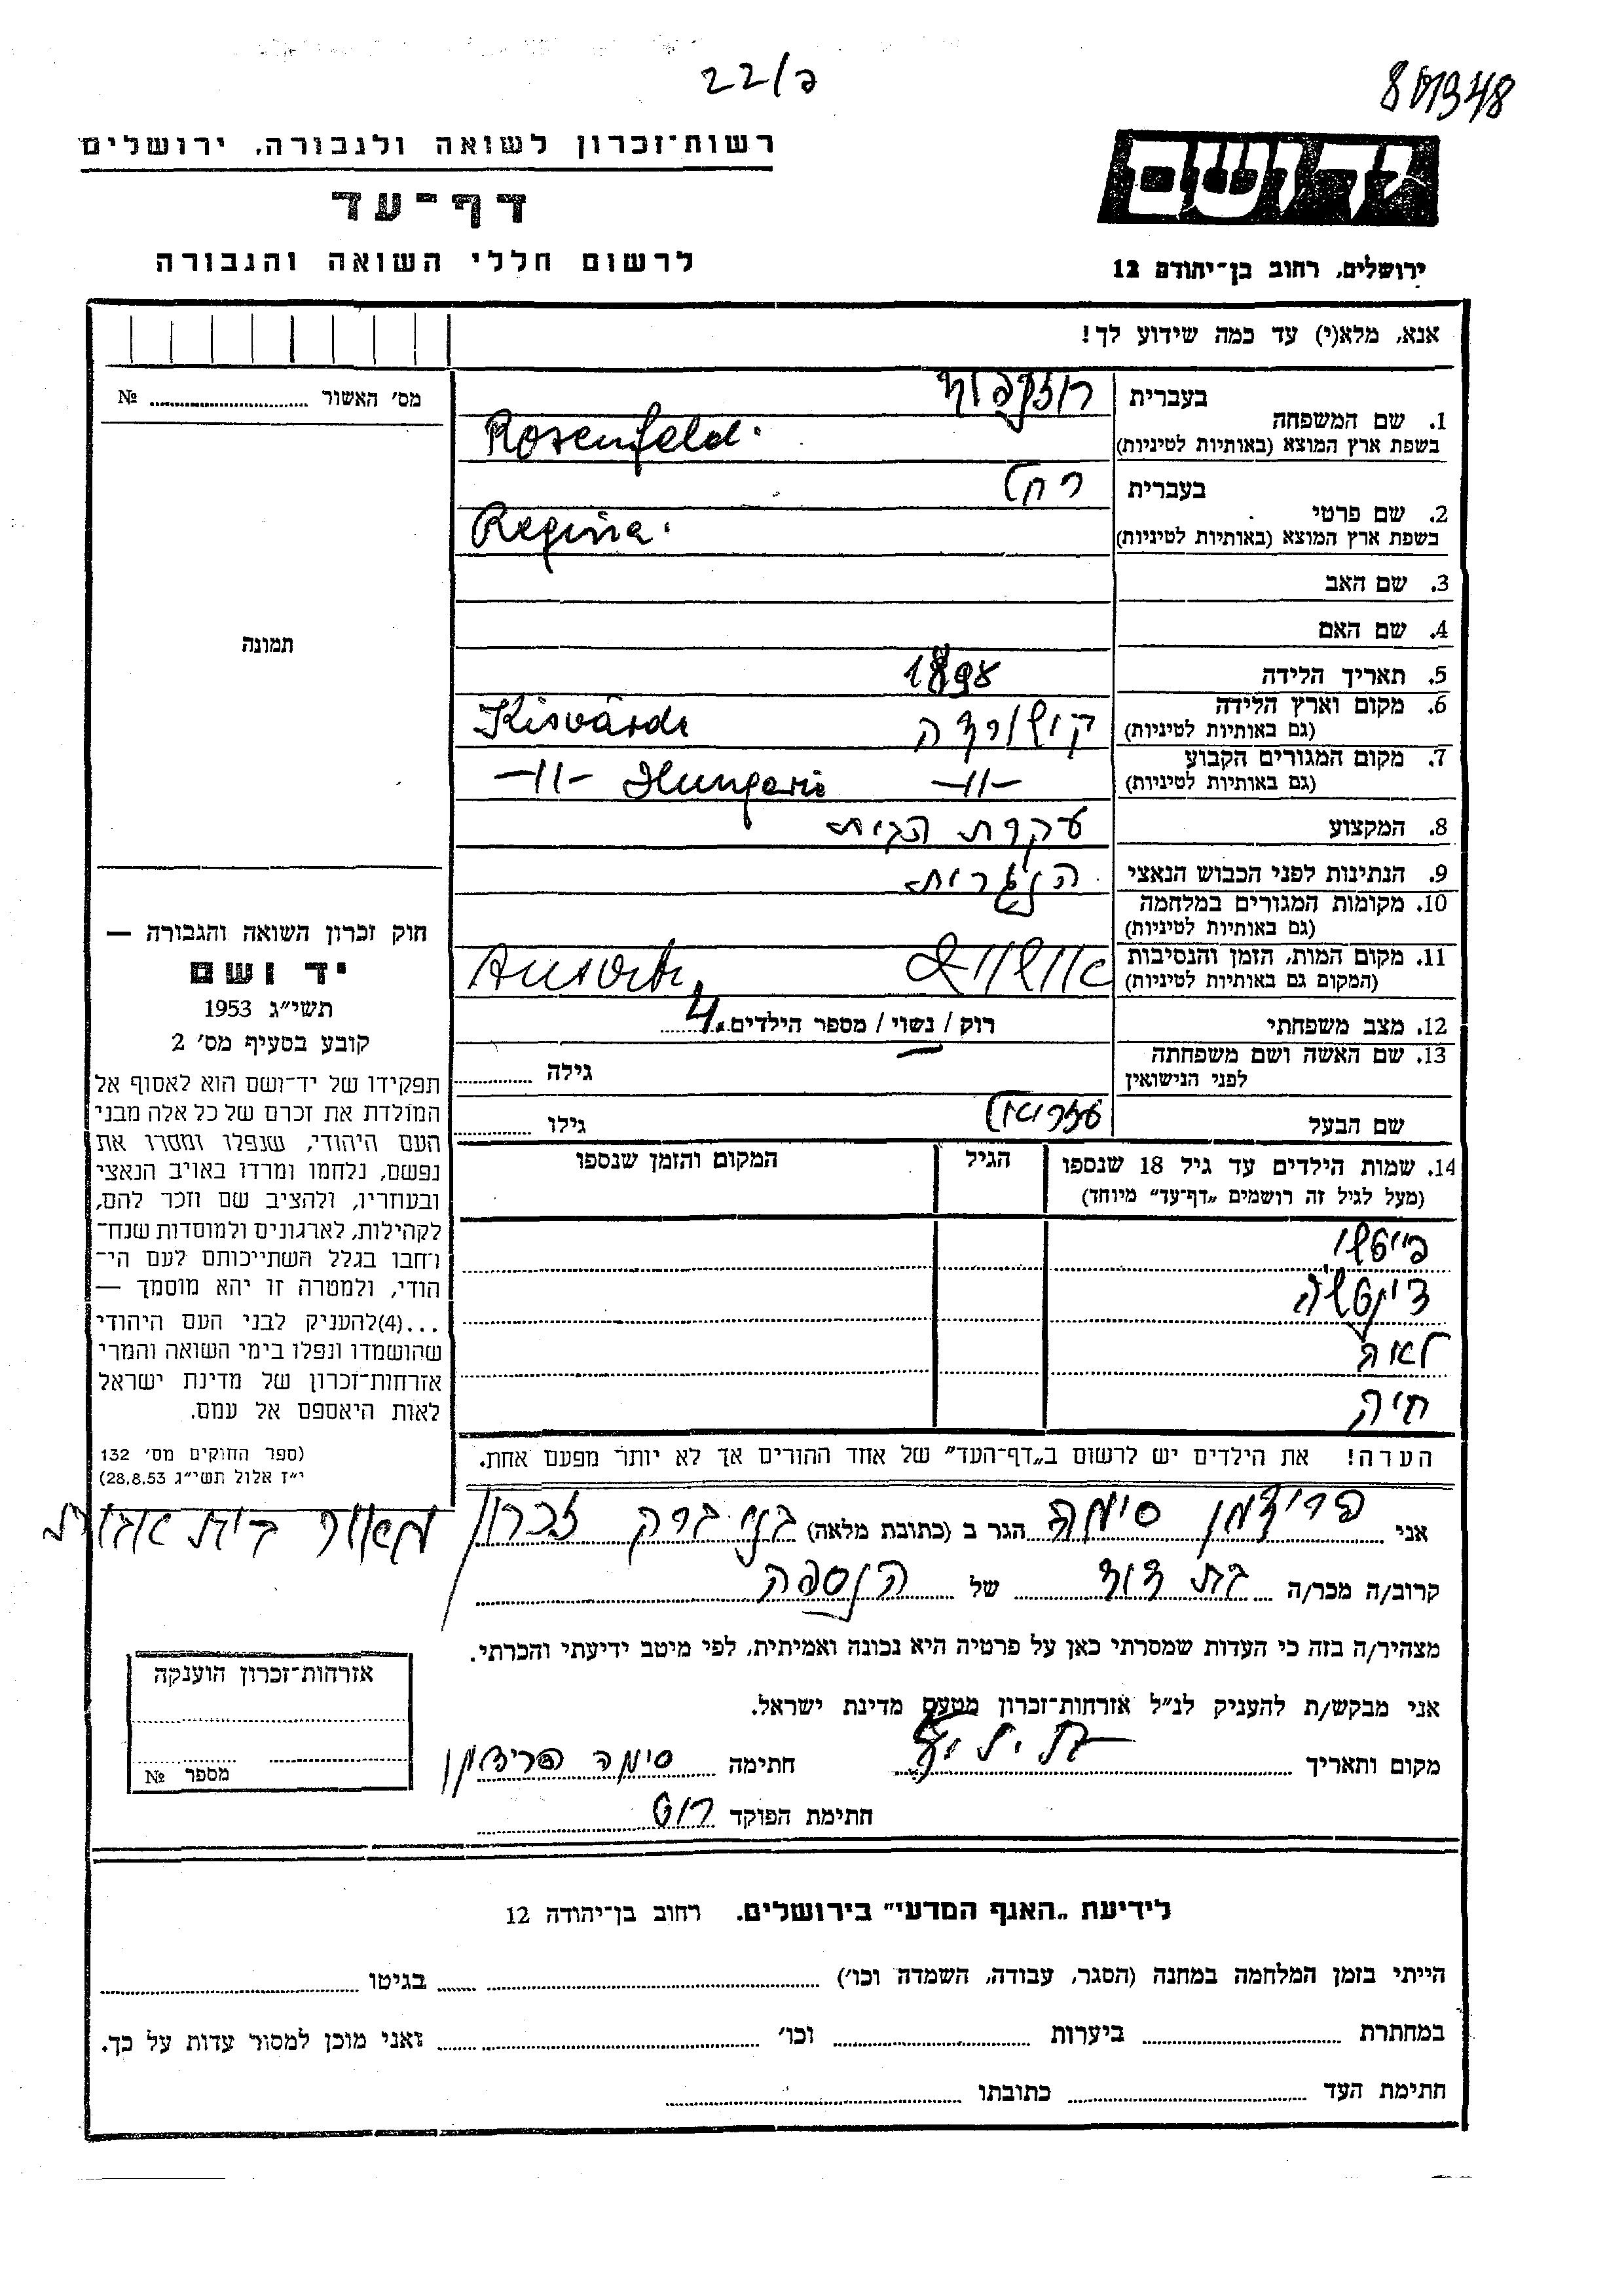 22/פ
רשות־זכרון לשואה ולגבורה, ירושלים
דף־עד
לרשום חללי השואה והגבורה
יד ושם
ירושלים, רחוב בן־יהודה 12
אנא, מלא(י) עד כמה שידוע לך!
מס׳ האשור № 
1. שם המשפחה בעברית רוזנפלד
בשפת ארץ המוצא (באותיות לטיניות) Rosenfeld
2. שם פרטי בעברית רחל
בשפת ארץ המוצא (באותיות לטיניות) Regina
3. שם האב
4. שם האם
תמונה
5. תאריך הלידה 1898
6. מקום וארץ הלידה (גם באותיות לטיניות) קישורדה Kisvárda
7. מקום המגורים הקבוע (גם באותיות לטיניות) -11- Hungaria -11-
8. המקצוע עקרת הבית
9. הנתינות לפני הכבוש הנאצי הונגרית
10. מקומות המגורים במלחמה
(גם באותיות לטיניות)
11. מקום המות, הזמן והנסיבות
(המקום גם באותיות לטיניות) אושויץ
12. מצב משפחתי רוק / נשוי / מספר הילדים 4
13. שם האשה ושם משפחתה
לפני הנישואין גילה
שם הבעל עזריאל גילו
14. שמות הילדים עד גיל 18 שנספו הגיל המקום והזמן שנספו
(מעל לגיל זה רושמים „דף־עד״ מיוחד)
לאה
חיה
הערה! את הילדים יש לרשום ב„דף־העד״ של אחד ההורים אך לא יותר מפעם אחת.
חוק זכרון השואה והגבורה —
יד ושם
תשי״ג 1953
קובע בסעיף מס׳ 2
תפקידו של יד־ושם הוא לאסוף אל
המולדת את זכרם של כל אלה מבני
העם היהודי, שנפלו ומסרו את
נפשם, נלחמו ומרדו באויב הנאצי
ובעוזריו, ולהציב שם וזכר להם,
לקהילות, לארגונים ולמוסדות שנח־
רחבו בגלל השתייכותם לעם הי־
הודי, ולמטרה זו יהא מוסמך —
...(4)להעניק לבני העם היהודי
שהושמדו ונפלו בימי השואה והמרי
אזרחות־זכרון של מדינת ישראל
לאות היאספם אל עמם.
(ספר החוקים מס׳ 132
י״ז אלול תשי״ג 28.8.53)
אני פרידמן סימה הגר ב (כתובת מלאה) בני ברק זכרון מאיר בית אבות
קרוב/ה מכר/ה בת דוד של הנספה
מצהיר/ה בזה כי העדות שמסרתי כאן על פרטיה היא נכונה ואמיתית, לפי מיטב ידיעתי והכרתי.
אני מבקש/ת להעניק לנ״ל אזרחות־זכרון מטעם מדינת ישראל.
מקום ותאריך חתימה סימה פרידמן
חתימת הפוקד רוט
אזרחות־זכרון הוענקה
מספר №
לידיעת „האגף המדעי״ בירושלים. רחוב בן־יהודה 12
הייתי בזמן המלחמה במחנה (הסגר, עבודה, השמדה וכו׳) בגיטו
במחתרת ביערות וכו׳ ואני מוכן למסור עדות על כך.
חתימת העד כתובתו